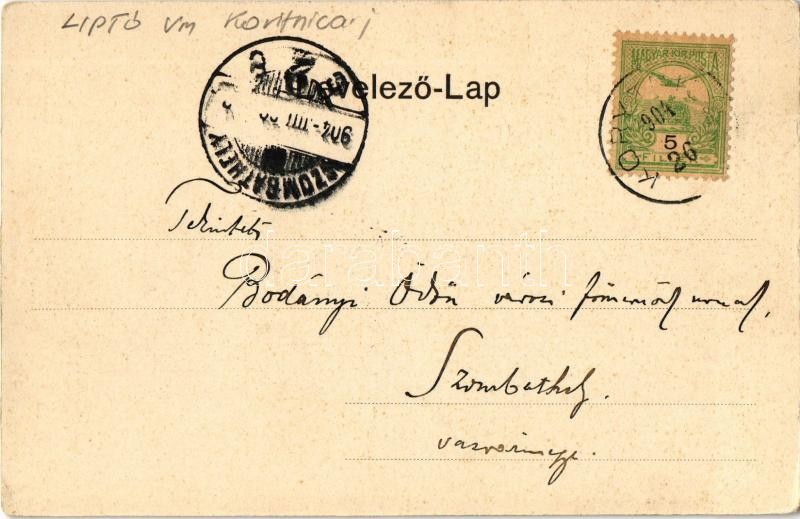 LIPTÓ vm Koritnica
Levelező-Lap
SZOMBATHELY
904
MAGYAR·KIR·POSTA
5
FILLÉR
904
26
Tekintetes
Bodányi Ödön városi főmérnök urnak,
Szombathely.
vasvármegye.
darabanth